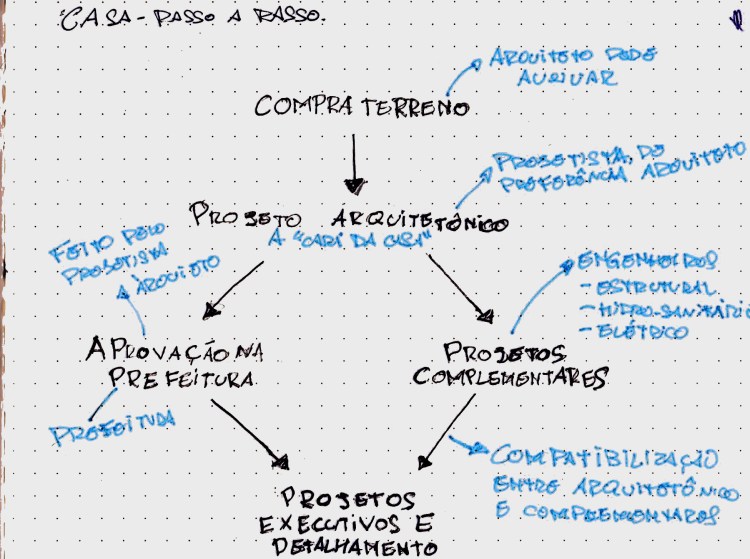 CASA - PASSO A PASSO.
ARQUITETO PODE
AUXILIAR
COMPRA TERRENO
PROJETISTA, DE
PREFERÊNCIA ARQUITETO
PROJETO ARQUITETÔNICO
A "CARA DA CASA"
FEITO PELO
PROJETISTA
ARQUITETO
ENGENHEIROS
- ESTRUTURAL
- HIDRO-SANITÁRIO
- ELÉTRICO
APROVAÇÃO NA
PREFEITURA
PROJETOS
COMPLEMENTARES
PREFEITURA
COMPATIBILIZAÇÃO
ENTRE ARQUITETÔNICO
E COMPLEMENTARES
PROJETOS
EXECUTIVOS E
DETALHAMENTO